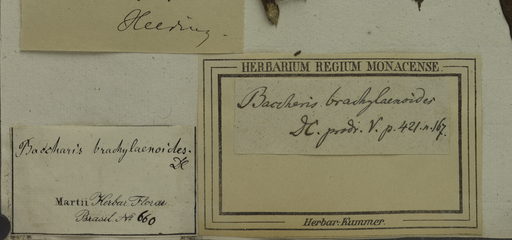 Heeding.
HERBARIUM REGIUM MONACENSE
Baccharis brachylaenoides
DC. prodr. V. p. 421. n. 167.
Herbar. Kummer.
Baccharis brachylaenoides.
DC
Martii Herbar. Florae
Brasil. No 660